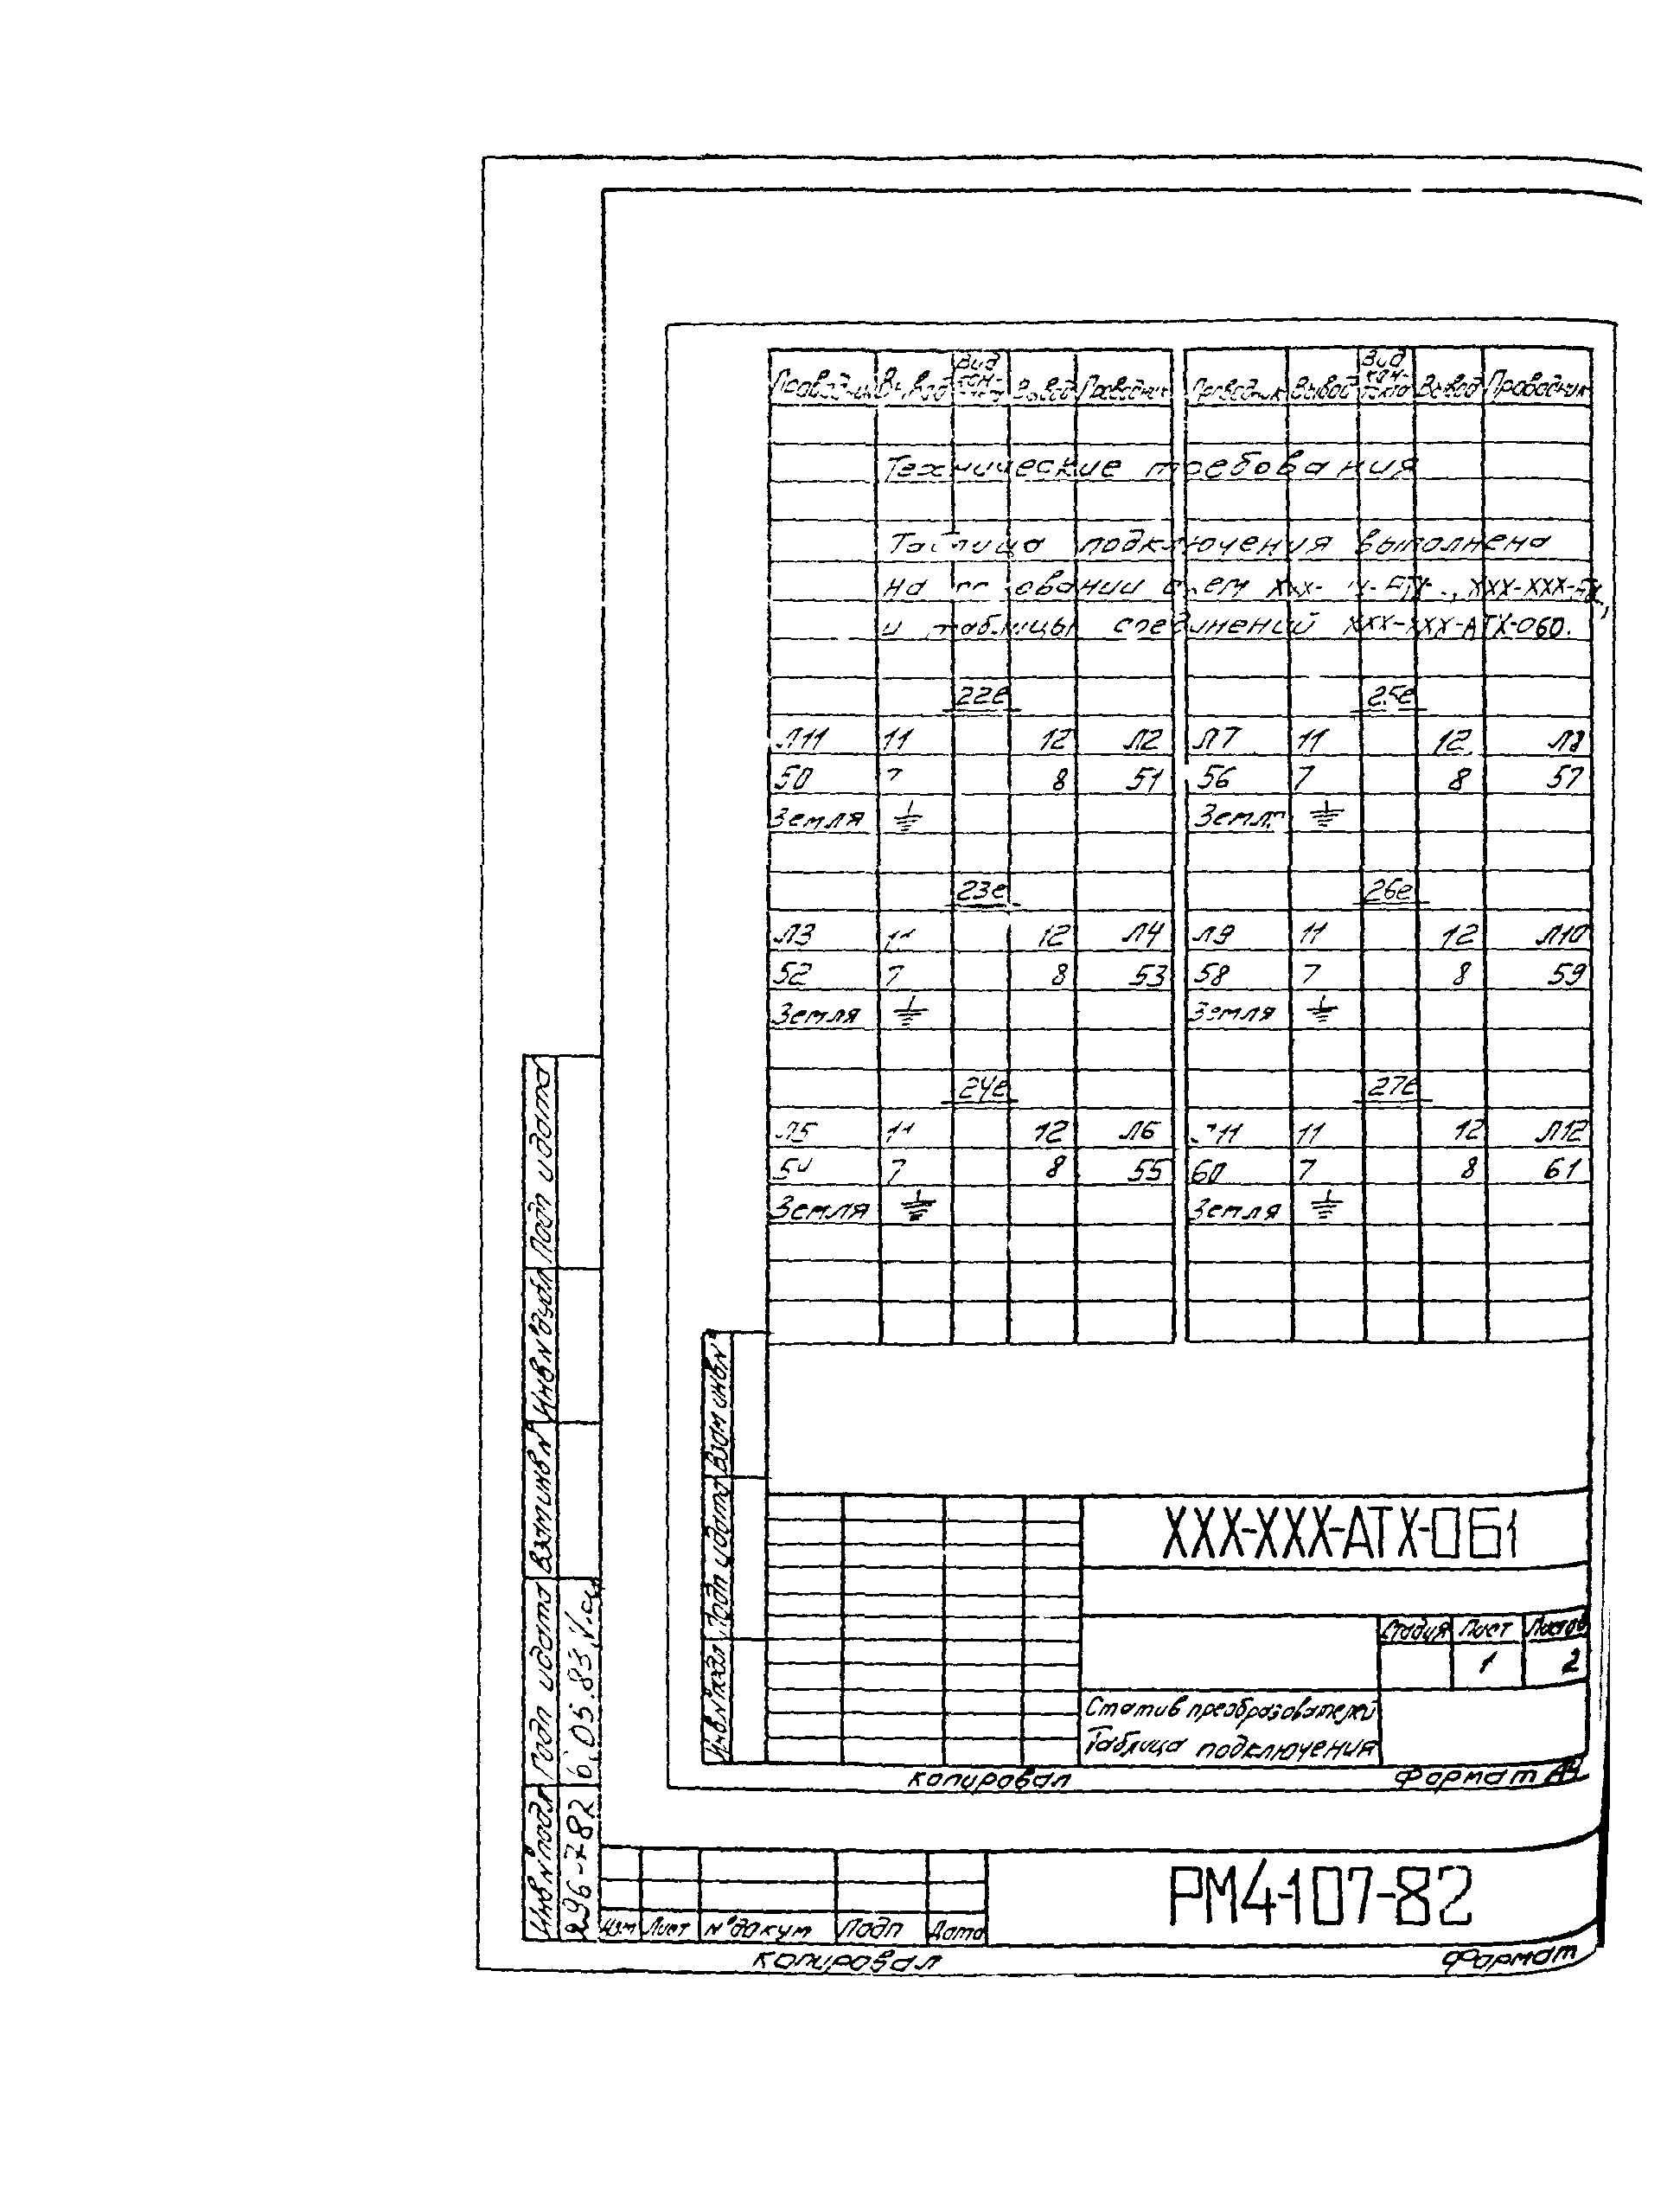 Проводник Вывод Вид кон- такта Вывод Проводник Проводник Вывод Вид кон- такта Вывод Проводник
Технические требования
Таблица подключения выполнена
на основании схем XXX-XXX-АТХ-, XXX-XXX-АТХ-,
и таблицы соединений XXX-XXX-АТХ-060.
22е 25е
Л11 11 12 Л2 Л7 11 12 Л8
50 7 8 51 56 7 8 57
Земля Земля
23е 26е
Л3 11 12 Л4 Л9 11 12 Л10
52 7 8 53 58 7 8 59
Земля Земля
24е 27е
Л5 11 12 Л6 Л11 11 12 Л12
54 7 8 55 60 7 8 61
Земля Земля
XXX-XXX-АТХ-061
Стадия Лист Листов
1 2
Статив преобразователей
Таблица подключения
Взам инв №
Подп и дата
Инв № подл
копировал Формат А4
Подп и дата
Инв № дубл
Взм инв №
Подп и дата
Инв № подл
296-782
РМ4-107-82
Изм Лист № докум Подп Дата
копировал Формат